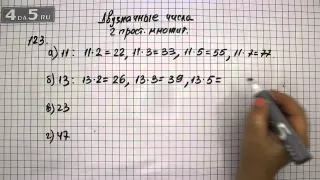 4DA5.RU
Двузначные числа
2 прост. множит.
123.
а) 11: 11·2=22, 11·3=33, 11·5=55, 11·7=77
б) 13: 13·2=26, 13·3=39, 13·5=
в) 23
г) 47